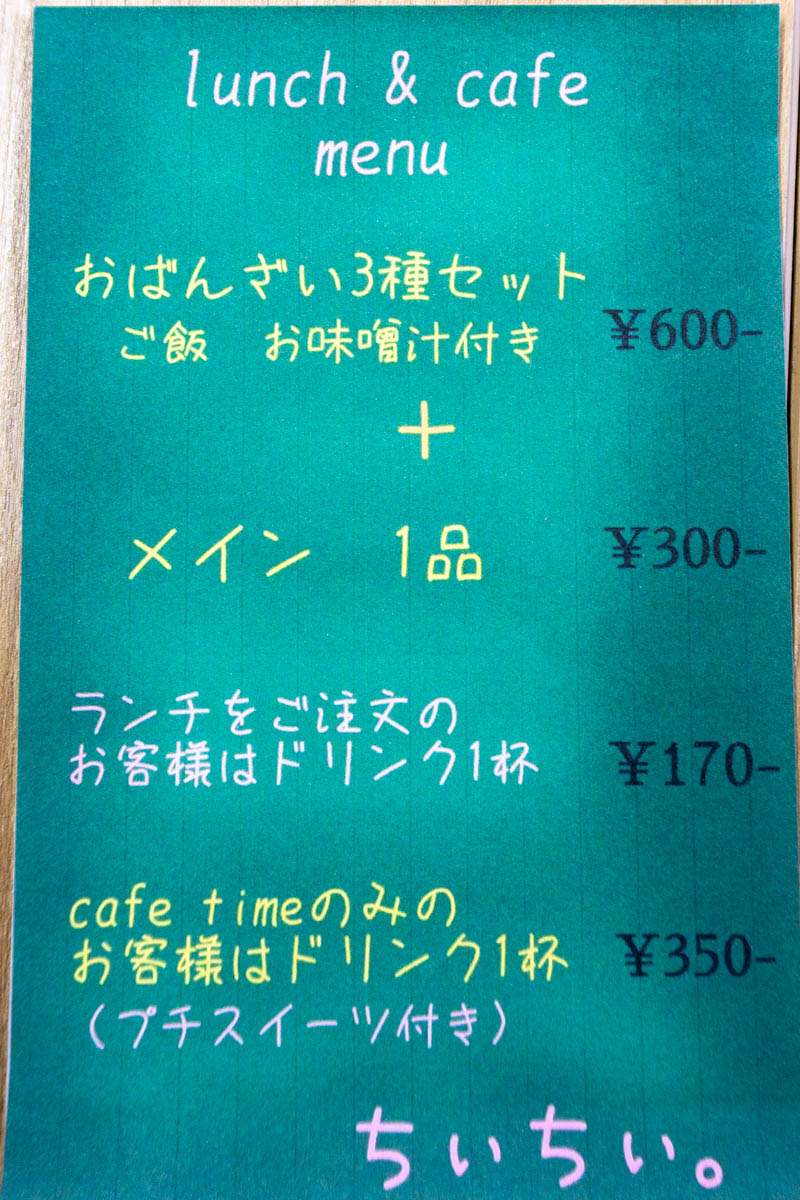 lunch & cafe
menu
おばんざい3種セット
ご飯　お味噌汁付き ¥600-
+
メイン　1品 ¥300-
ランチをご注文の
お客様はドリンク1杯 ¥170-
cafe timeのみの
お客様はドリンク1杯 ¥350-
(プチスイーツ付き)
ちぃちぃ。